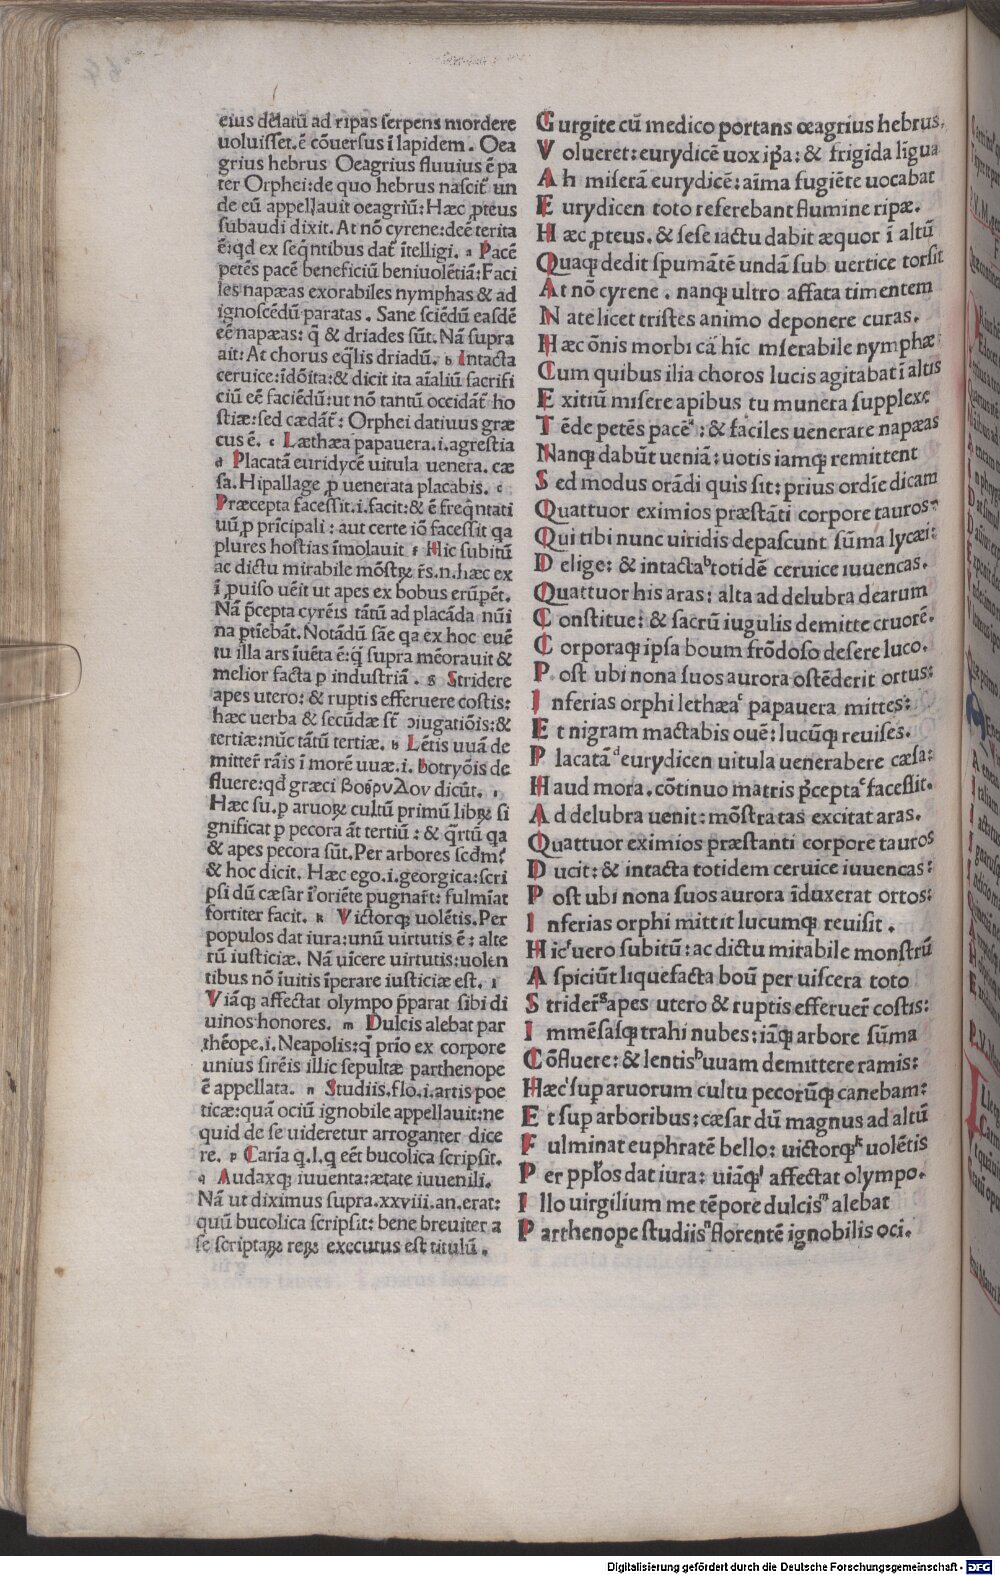 eius delatũ ad ripas serpens mordere
uoluisset. ẽ cõuersus ĩ lapidem. Oea
grius hebrus Oeagrius fluuius ẽ pa
ter Orphei: de quo hebrus nascit̃ un
de eũ appellauit oeagriũ: Hæc ꝓteus
subaudi dixit. At nõ cyrene: deẽ terita
ẽ: qd ex seq̃ntibus dat̃ ĩtelligi. a Pacẽ
petẽs pacẽ beneficiũ beniuolẽtiã: Faci
les napæas exorabiles nymphas & ad
ignoscẽdũ paratas. Sane sciẽdũ easdẽ
eẽ napæas: q̃ & driades sũt. Nã supra
ait: At chorus eq̃lis driadũ. b Intacta
ceruice: ĩdõita: & dicit ita aĩaliũ sacrifi
ciũ eẽ faciẽdũ: ut nõ tantũ occidãt̃ ho
stiæ: sed cædãt̃: Orphei datiuus græ
cus ẽ. c Læthæa papauera. i. agrestia
d Placatã euridycẽ uitula uenera. cæ
sa. Hipallage ꝓ uenerata placabis. e
Præcepta facessit. i. facit: & ẽ freq̃ntati
uũ ꝓ prĩcipali: aut certe iõ facessit qa
plures hostias ĩmolauit f Hic subitũ
ac dictu mirabile mõstꝝ r̃s. n. hæc ex
ĩꝓuiso uẽit ut apes ex bobus erũpẽt.
Nã p̃cepta cyrẽis tãtũ ad placãda nũi
na ptĩebãt. Notãdũ sãe qa ex hoc euẽ
tu illa ars ĩuẽta ẽ: q̃ supra mẽorauit &
melior facta p industriã. g Stridere
apes utero: & ruptis efferuere costis:
hæc uerba & secũdæ st̃ ɔiugatiõis: &
tertiæ: nũc tãtũ tertiæ. h Lẽtis uuã de
mitter̃ rãis ĩ morẽ uuæ. i. botryõis de
fluere: qd græci βοτρυδον dicũt. i
Hæc su. p aruoꝝ cultũ primũ libꝝ si
gnificat p pecora ãt tertiũ: & q̃rtũ qa
& apes pecora sũt. Per arbores scdm̃
& hoc dicit. Hæc ego. i. georgica: scri
psi dũ cæsar ĩ oriẽte pugnar̃t: fulmiat
fortiter facit. k Victorqꝫ uolẽtis. Per
populos dat iura: unũ uirtutis ẽ: alte
rũ iusticiæ. Nã uĩcere uirtutis: uolen
tibus nõ ĩuitis ĩperare iusticiæ est. l
Viãqꝫ affectat olympo p̃parat sibi di
uinos honores. m Dulcis alebat par
thẽope. i. Neapolis: q̃ prio ex corpore
unius sirẽis illic sepultæ parthenope
ẽ appellata. n Studiis. flo. i. artis poe
ticæ: quã ociũ ignobile appellauit: ne
quid de se uideretur arroganter dice
re. p Caria q. l. q eẽt bucolica scripsit.
q Audaxqꝫ iuuenta: ætate iuuenili.
Nã ut diximus supra. xxviii. an. erat:
quũ bucolica scripsit: bene breuiter a
se scriptaꝝ reꝝ executus est titulũ.
Gurgite cũ medico portans œagrius hebrus,
Volueret: eurydicẽ uox ip̃a: & frigida lĩgua
Ah miserã eurydicẽ: aĩma fugiẽte uocabat
Eurydicen toto referebant flumine ripæ.
Hæc ꝓteus. & sese iactu dabit æquor ĩ altũ
Quaqꝫ dedit spumãtẽ undã sub uertice torsit
At nõ cyrene. nanqꝫ ultro affata timentem
Nate licet tristes animo deponere curas.
Hæc õnis morbi cã hĩc miserabile nymphæ:
Cum quibus ilia choros lucis agitabat ĩ altis
Exitiũ misere apibus tu munera supplexe
Tẽde petẽs pacẽª: & faciles uenerare napæas
Nanqꝫ dabũt ueniã: uotis iamqꝫ remittent
Sed modus orãdi quis sit: prius ordĩe dicam
Quattuor eximios præstãti corpore tauros
Qui tibi nunc uiridis depascunt sũma lycæi:
Delige: & intactaᵇ totidẽ ceruice iuuencas.
Quattuor his aras: alta ad delubra dearum
Constitue: & sacrũ iugulis demitte cruorẽ.
Corporaqꝫ ipsa boum frõdoso desere luco.
Post ubi nona suos aurora ostẽderit ortus:
Inferias orphi lethæaᶜ papauera mittes:
Et nigram mactabis ouẽ: lucũqꝫ reuises.
Placatãᵈ eurydicen uitula uenerabere cæsa:
Haud mora. cõtinuo matris p̃ceptaᵉ facessit.
Ad delubra uenit: mõstratas excitat aras.
Quattuor eximios præstanti corpore tauros
Ducit: & intacta totidem ceruice iuuencas:
Post ubi nona suos aurora ĩduxerat ortos:
Inferias orphi mittit lucumqꝫ reuisit.
Hicᶠ uero subitũ: ac dictu mirabile monstrũ
Aspiciũt liquefacta boũ per uiscera toto
Strider̃ᵍ apes utero & ruptis efferuer̃ costis:
Immẽsasqꝫ trahi nubes: iãqꝫ arbore sũma
Cõfluere: & lentisʰ uuam demittere ramis:
Hæcⁱ sup aruorum cultu pecorũqꝫ canebam:
Et sup arboribus: cæsar dũ magnus ad altũ
Fulminat euphratẽ bello: uictorqꝫᵏ uolẽtis
Per pp̃los dat iura: uiãqꝫˡ affectat olympo.
Illo uirgilium me tẽpore dulcisᵐ alebat
Parthenope studiisⁿ florentẽ ignobilis oci.
Digitalisierung gefördert durch die Deutsche Forschungsgemeinschaft - DFG